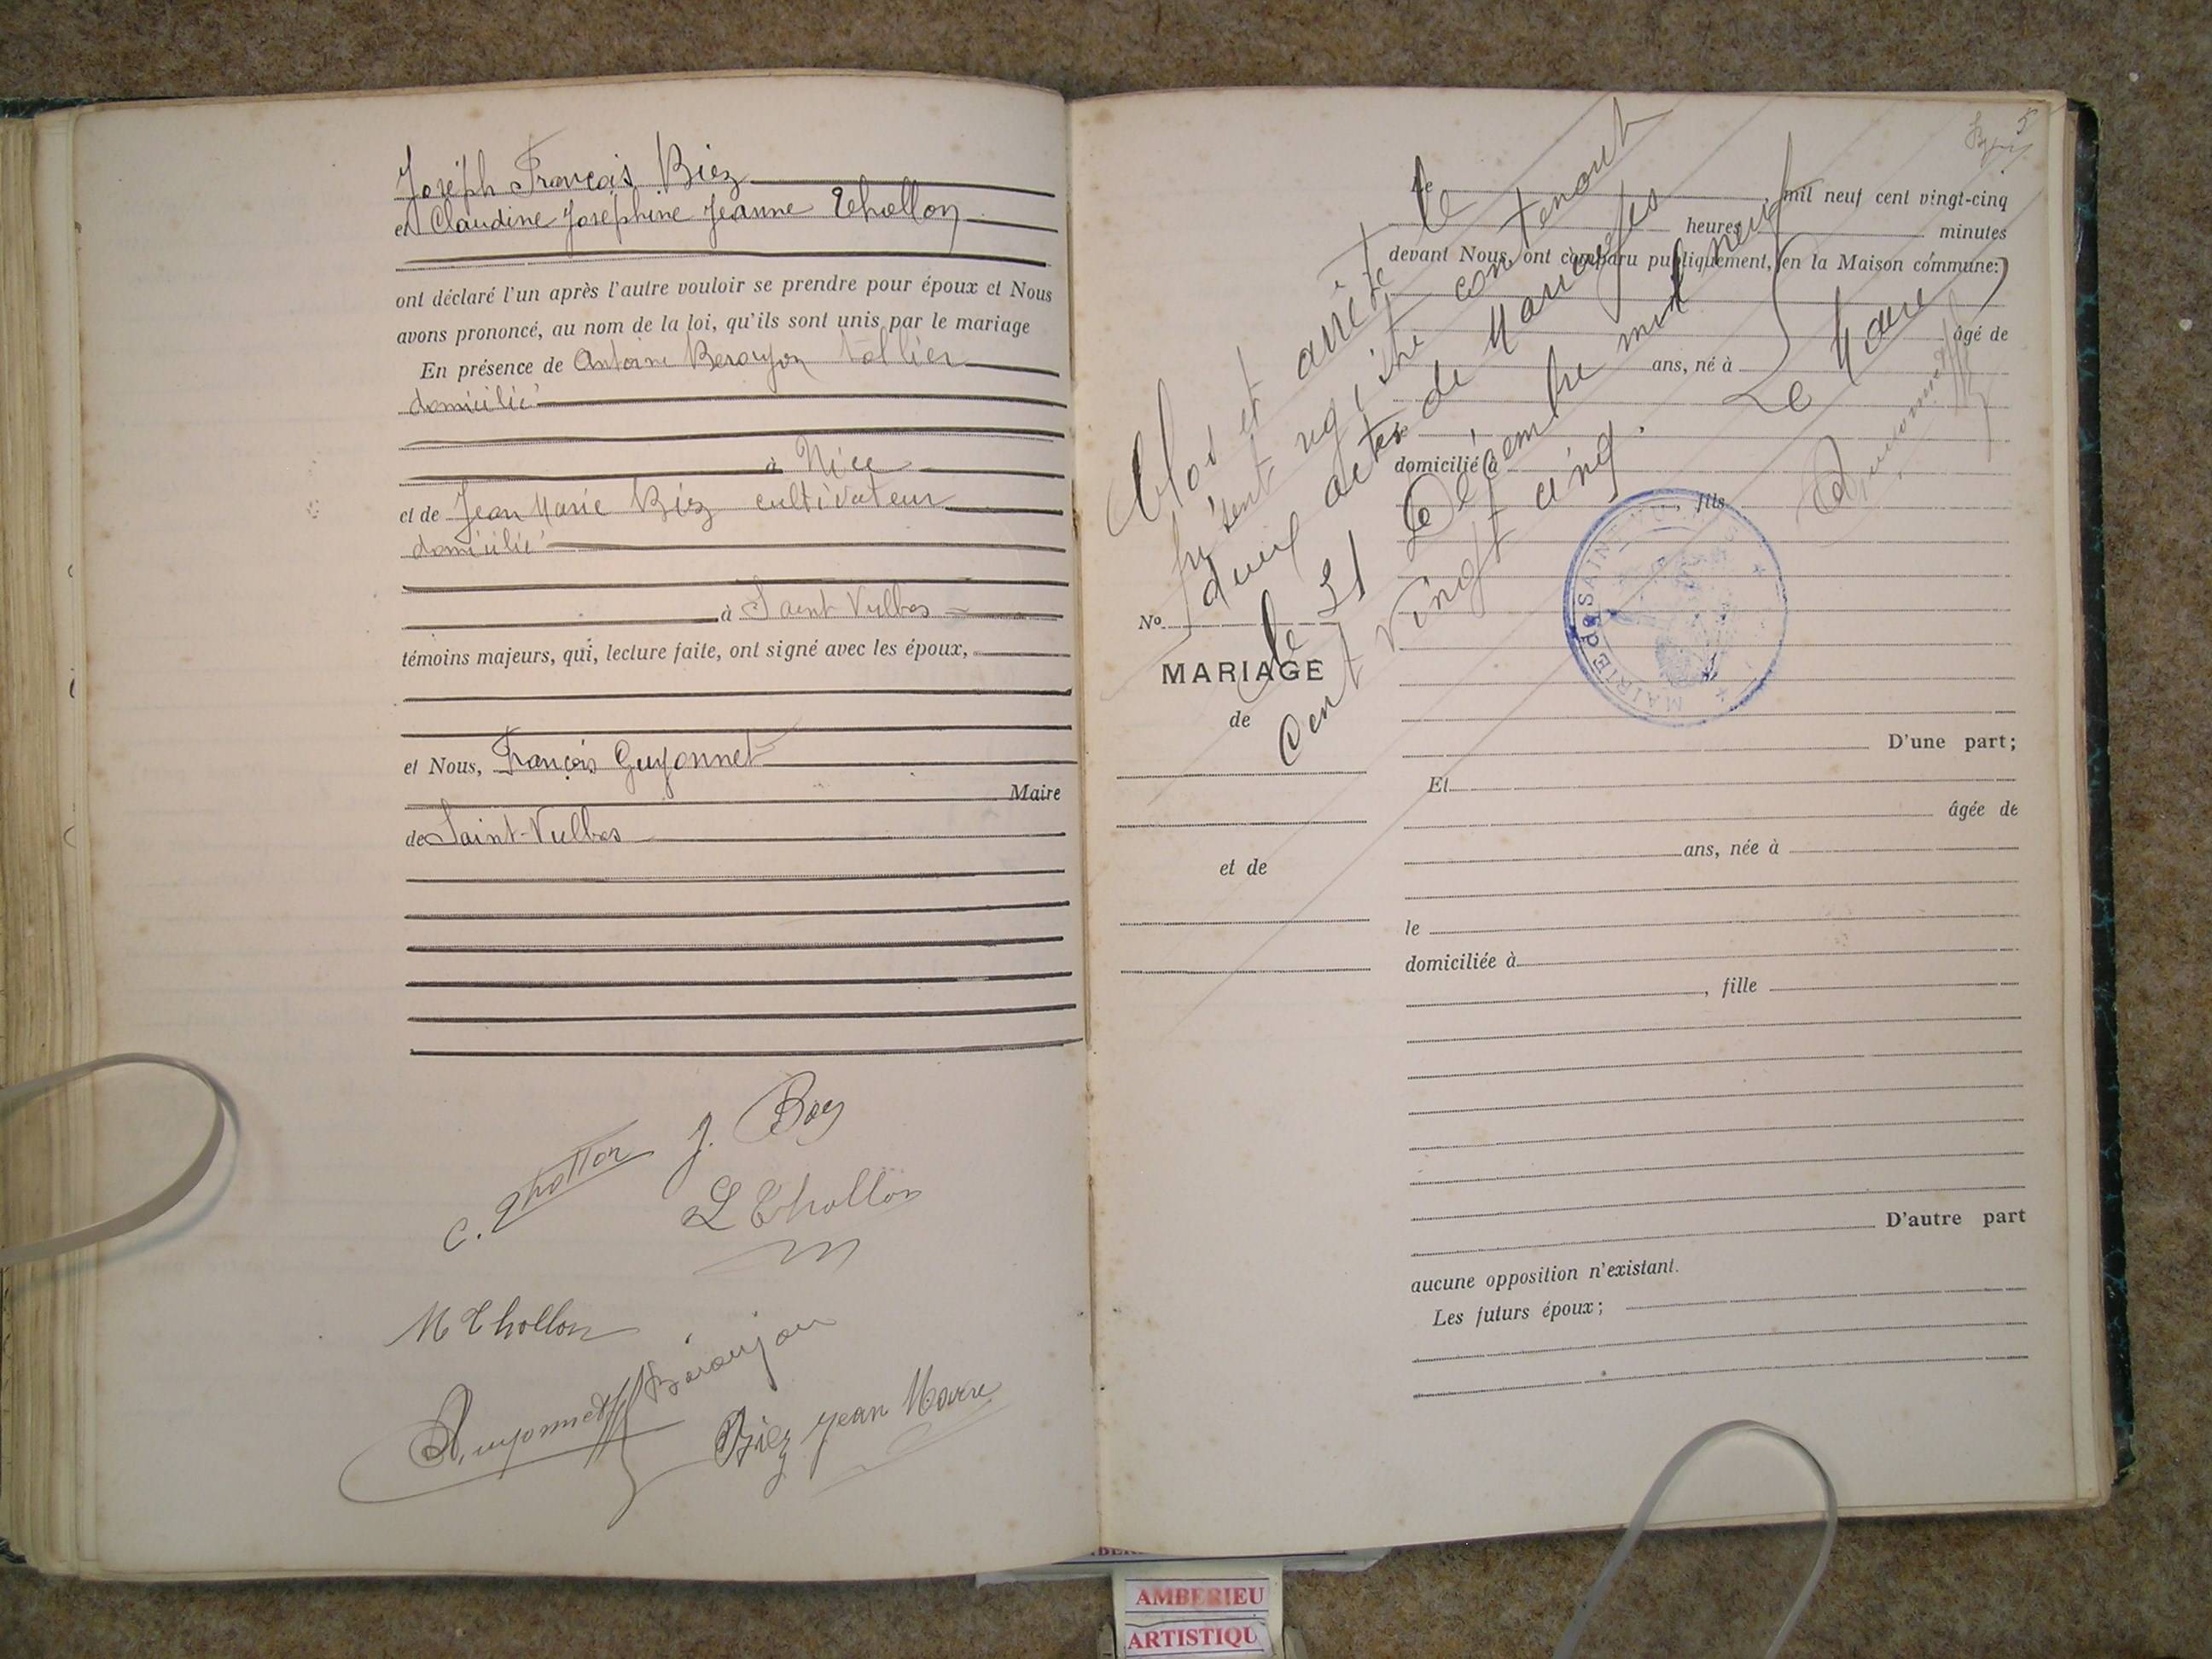 Joseph François Biez
et Claudine Joséphine Jeanne Thollon
ont déclaré l'un après l'autre vouloir se prendre pour époux et Nous
avons prononcé, au nom de la loi, qu'ils sont unis par le mariage
En présence de Antoine Beraujon
domicilié
à Nice
et de Jean Marie Biez cultivateur
domicilié
à Saint Vulbas
témoins majeurs, qui, lecture faite, ont signé avec les époux,
et Nous, François Guyonnet
Maire
de Saint-Vulbas
C. Thollon J. Biez
L Thollon
M Thollon
Guyonnet Béraujon
Biez Jean Marie
5
Le , mil neuf cent vingt-cinq
heures minutes
devant Nous, ont comparu publiquement, en la Maison commune:
âgé de
ans, né à
domicilié à
, fils
D'une part;
Et
âgée de
ans, née à
le
domiciliée à
, fille
D'autre part
aucune opposition n'existant.
Les futurs époux;
No
MARIAGE
de
et de
Clos et arrêté le
présent registre contenant
deux actes de Mariages
le 31 Décembre mil neuf
cent vingt cinq.
Le Maire
Guyonnet
MAIRIE de SAINT-VULBAS
AMBERIEU
ARTISTIQU